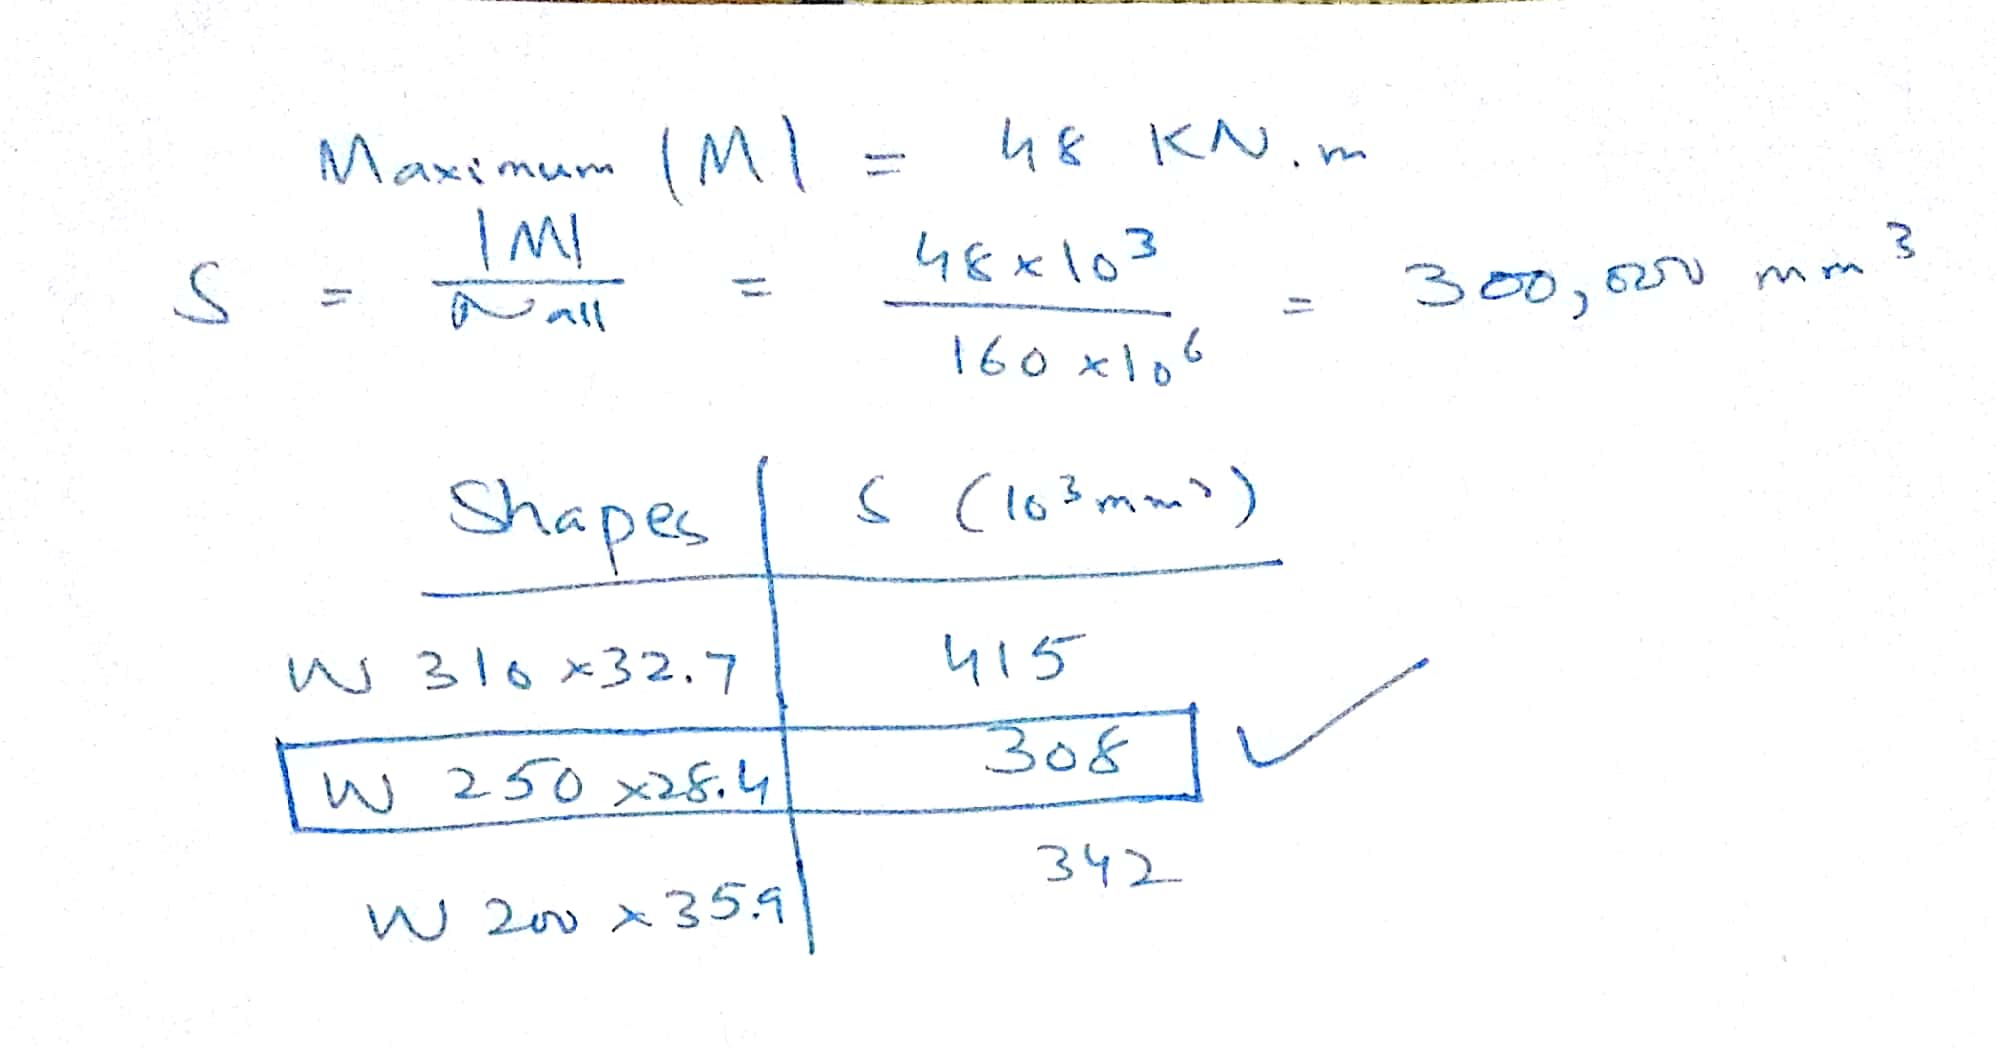 Maximum |M| = 48 KN.m
S = |M| / σall = 48×10³ / 160×10⁶ = 300,000 mm³
Shapes | S (10³mm³)
W 310 ×32.7 | 415
W 250 ×28.4 | 308 ✓
W 200 × 35.9 | 342